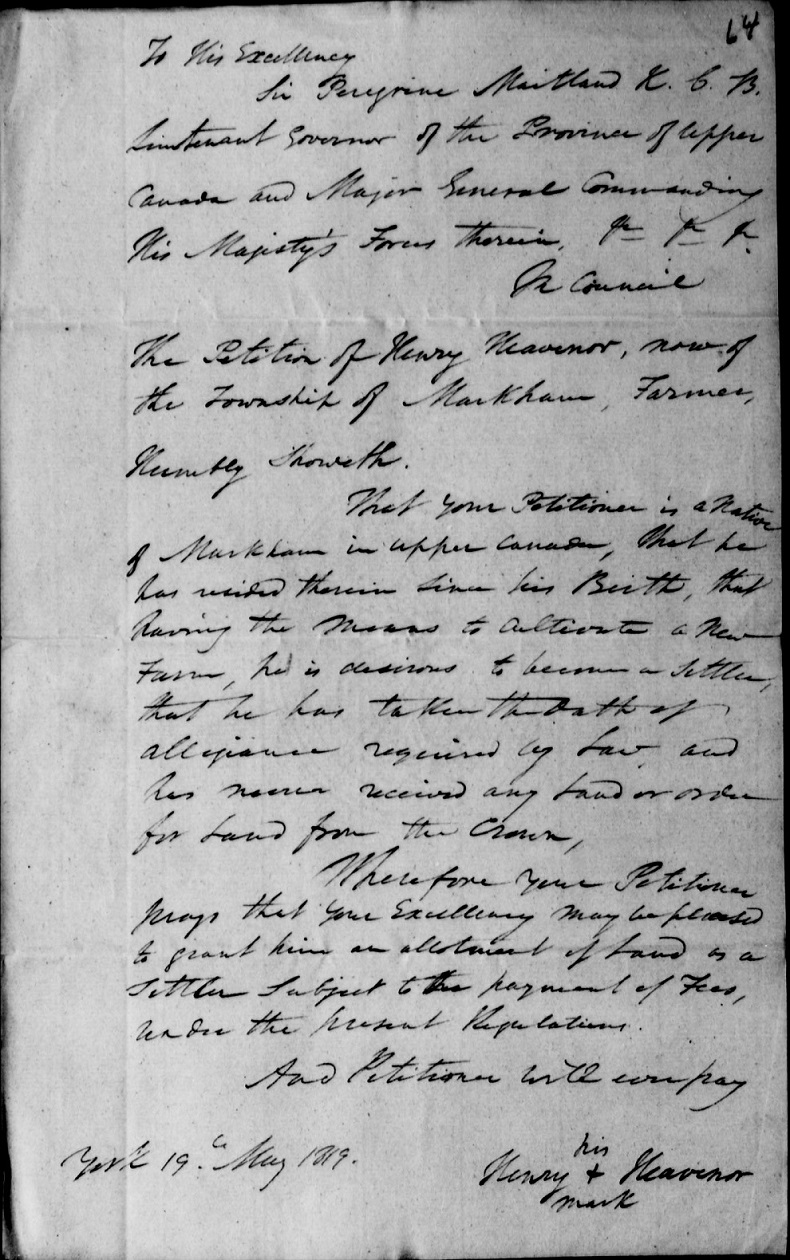 64
To His Excellency
Sir Peregrine Maitland K. C. B.
Lieutenant Governor of the Province of Upper
Canada and Major General Commanding
His Majesty's Forces therein, &c &c &c
In Council
The Petition of Henry Heavenor, now of
the Township of Markham, Farmer,
Humbly Showeth.
That your Petitioner is a Native
of Markham in upper Canada, that he
has resided therein since his Birth, that
having the Means to cultivate a New
Farm, he is desirous to become a Settler,
that he has taken the Oath of
allegiance required by Law and
has never received any Land or order
for Land from the Crown,
Wherefore your Petitioner
prays that your Excellency may be pleased
to grant him an allotment of Land as a
Settler Subject to the payment of Fees,
under the present Regulations.
And Petitioner will ever pray
York 19.th May 1819.
his
Henry + Heavenor
mark